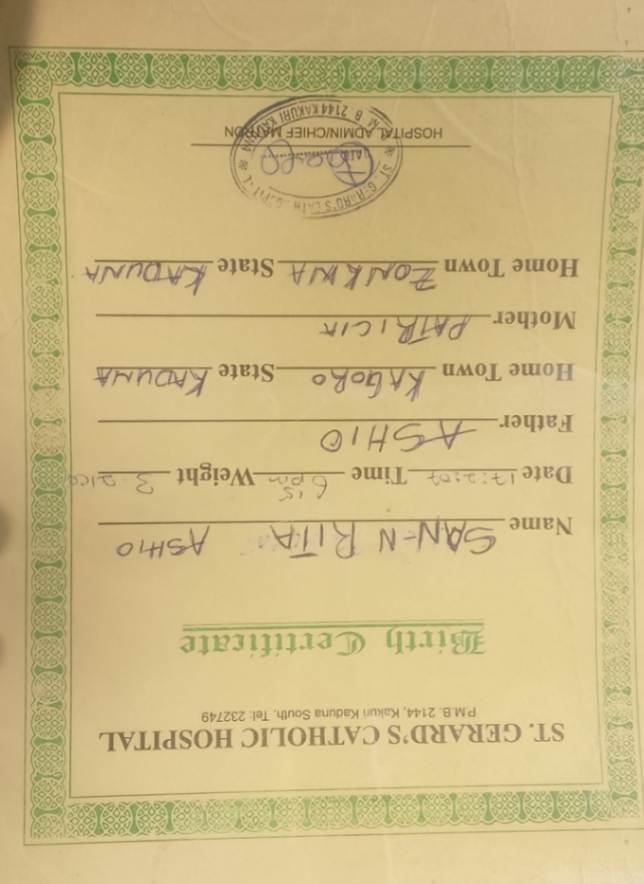 ST. GERARD'S CATHOLIC HOSPITAL
P.M.B. 2144, Kakuri Kaduna South. Tel: 232749
Birth Certificate
Name SAN-N RITA ASHIO
Date 17:2:07 Time 6 15 pm Weight 3.21
Father ASHIO
Home Town KAGORO State KADUNA
Mother PATRICIA
Home Town ZONKWA State KADUNA
ST. GERARD'S CATH
P.M.B. 2144 KAKURI KADUNA
HOSPITAL ADMIN/CHIEF MATRON